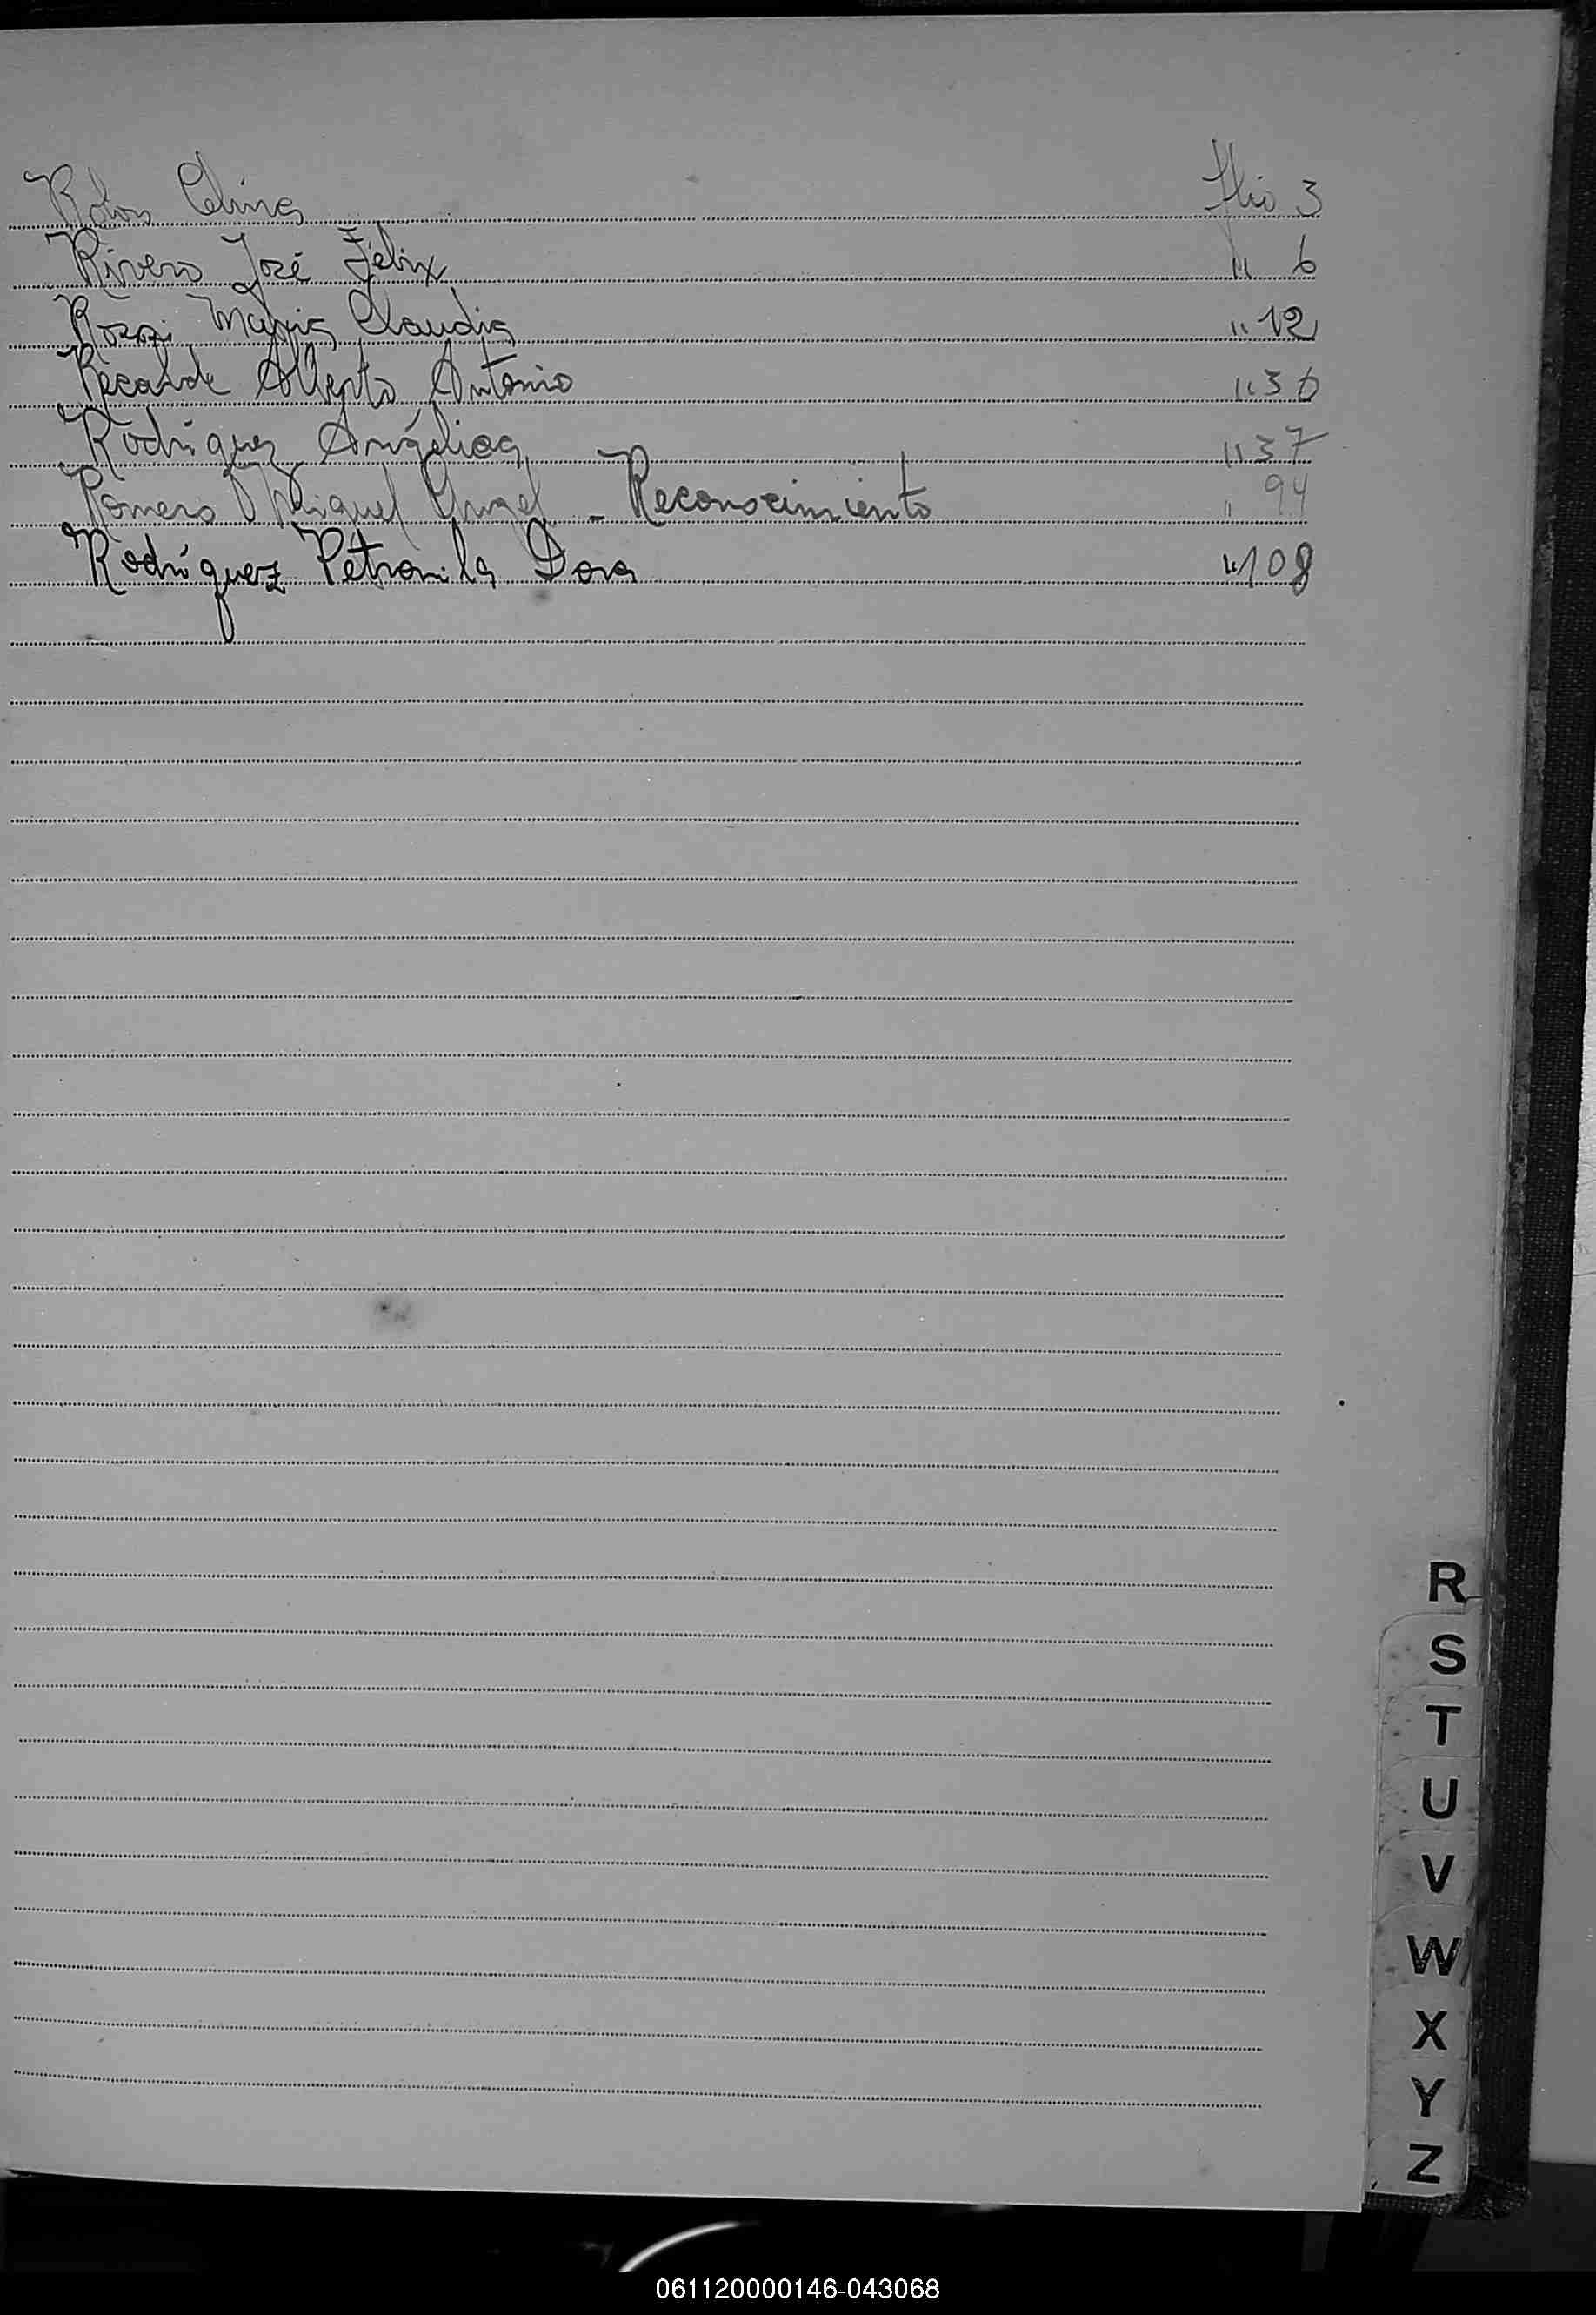 Rolon Celina flio 3
Rivero José Félix " 6
Rossi Maria Claudia " 12
Recalde Alberto Antonio " 36
Rodriguez Angélica " 37
Romero Miguel Angel - Reconocimiento " 94
Rodríguez Petronila Dora " 108
R
S
T
U
V
W
X
Y
Z
061120000146-043068